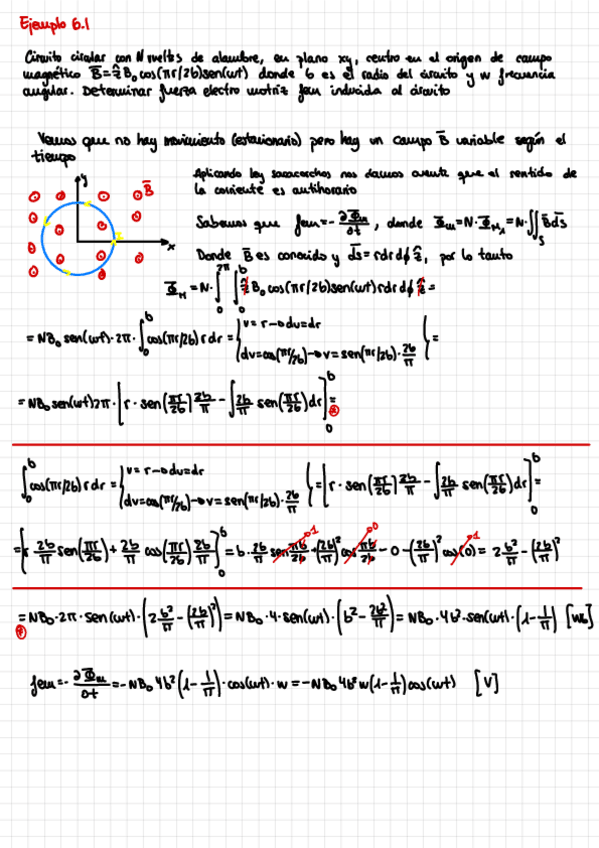 Ejemplo 6.1
Circuito circular con N vueltas de alambre, en plano xy, centro en el origen de campo
magnético B̄=ẑB₀cos(πr/2b)sen(ωt) donde b es el radio del circuito y w frecuencia
angular. Determinar fuerza electro motriz fem inducida al circuito
Vemos que no hay movimiento (estacionario) pero hay un campo B̄ variable según el
tiempo
Aplicando ley sacacorchos nos damos cuenta que el sentido de
la corriente es antihorario
y
B̄
x
I
Sabemos que fem=-∂Φ̄ₘ/∂t, donde Φ̄ₘ=N·Φ̄ₘ₁=N·∬ₛB̄ds̄
Donde B̄ es conocido y ds̄=rdrdϕẑ, por lo tanto
Φ̄ₘ=N·∫₀^2π ∫₀^b ẑB₀cos(πr/2b)sen(ωt)rdrdϕẑ=
=NB₀sen(ωt)·2π·∫₀^b cos(πr/2b)rdr={u=r→du=dr
dv=cos(πr/2b)→v=sen(πr/2b)·2b/π}=
=NB₀sen(ωt)2π·[r·sen(πr/2b)2b/π-∫2b/π sen(πr/2b)dr]₀^b=
*
∫₀^b cos(πr/2b)rdr={u=r→du=dr
dv=cos(πr/2b)→v=sen(πr/2b)·2b/π}=[r·sen(πr/2b)2b/π-∫2b/π sen(πr/2b)dr]₀^b=
=[r 2b/π sen(πr/2b)+2b/π cos(πr/2b)2b/π]₀^b=b·2b/π sen πb/2b→1+(2b/π)²cos πb/2b→0-0-(2b/π)²cos(0)→1=2b²/π-(2b/π)²
=NB₀·2π·sen(ωt)·(2b²/π-(2b/π)²)=NB₀·4·sen(ωt)·(b²-2b²/π)=NB₀·4b²·sen(ωt)·(1-1/π) [Wb]
*
fem=-∂Φ̄ₘ/∂t=-NB₀4b²(1-1/π)·cos(ωt)·w=-NB₀4b²w(1-1/π)cos(ωt) [V]